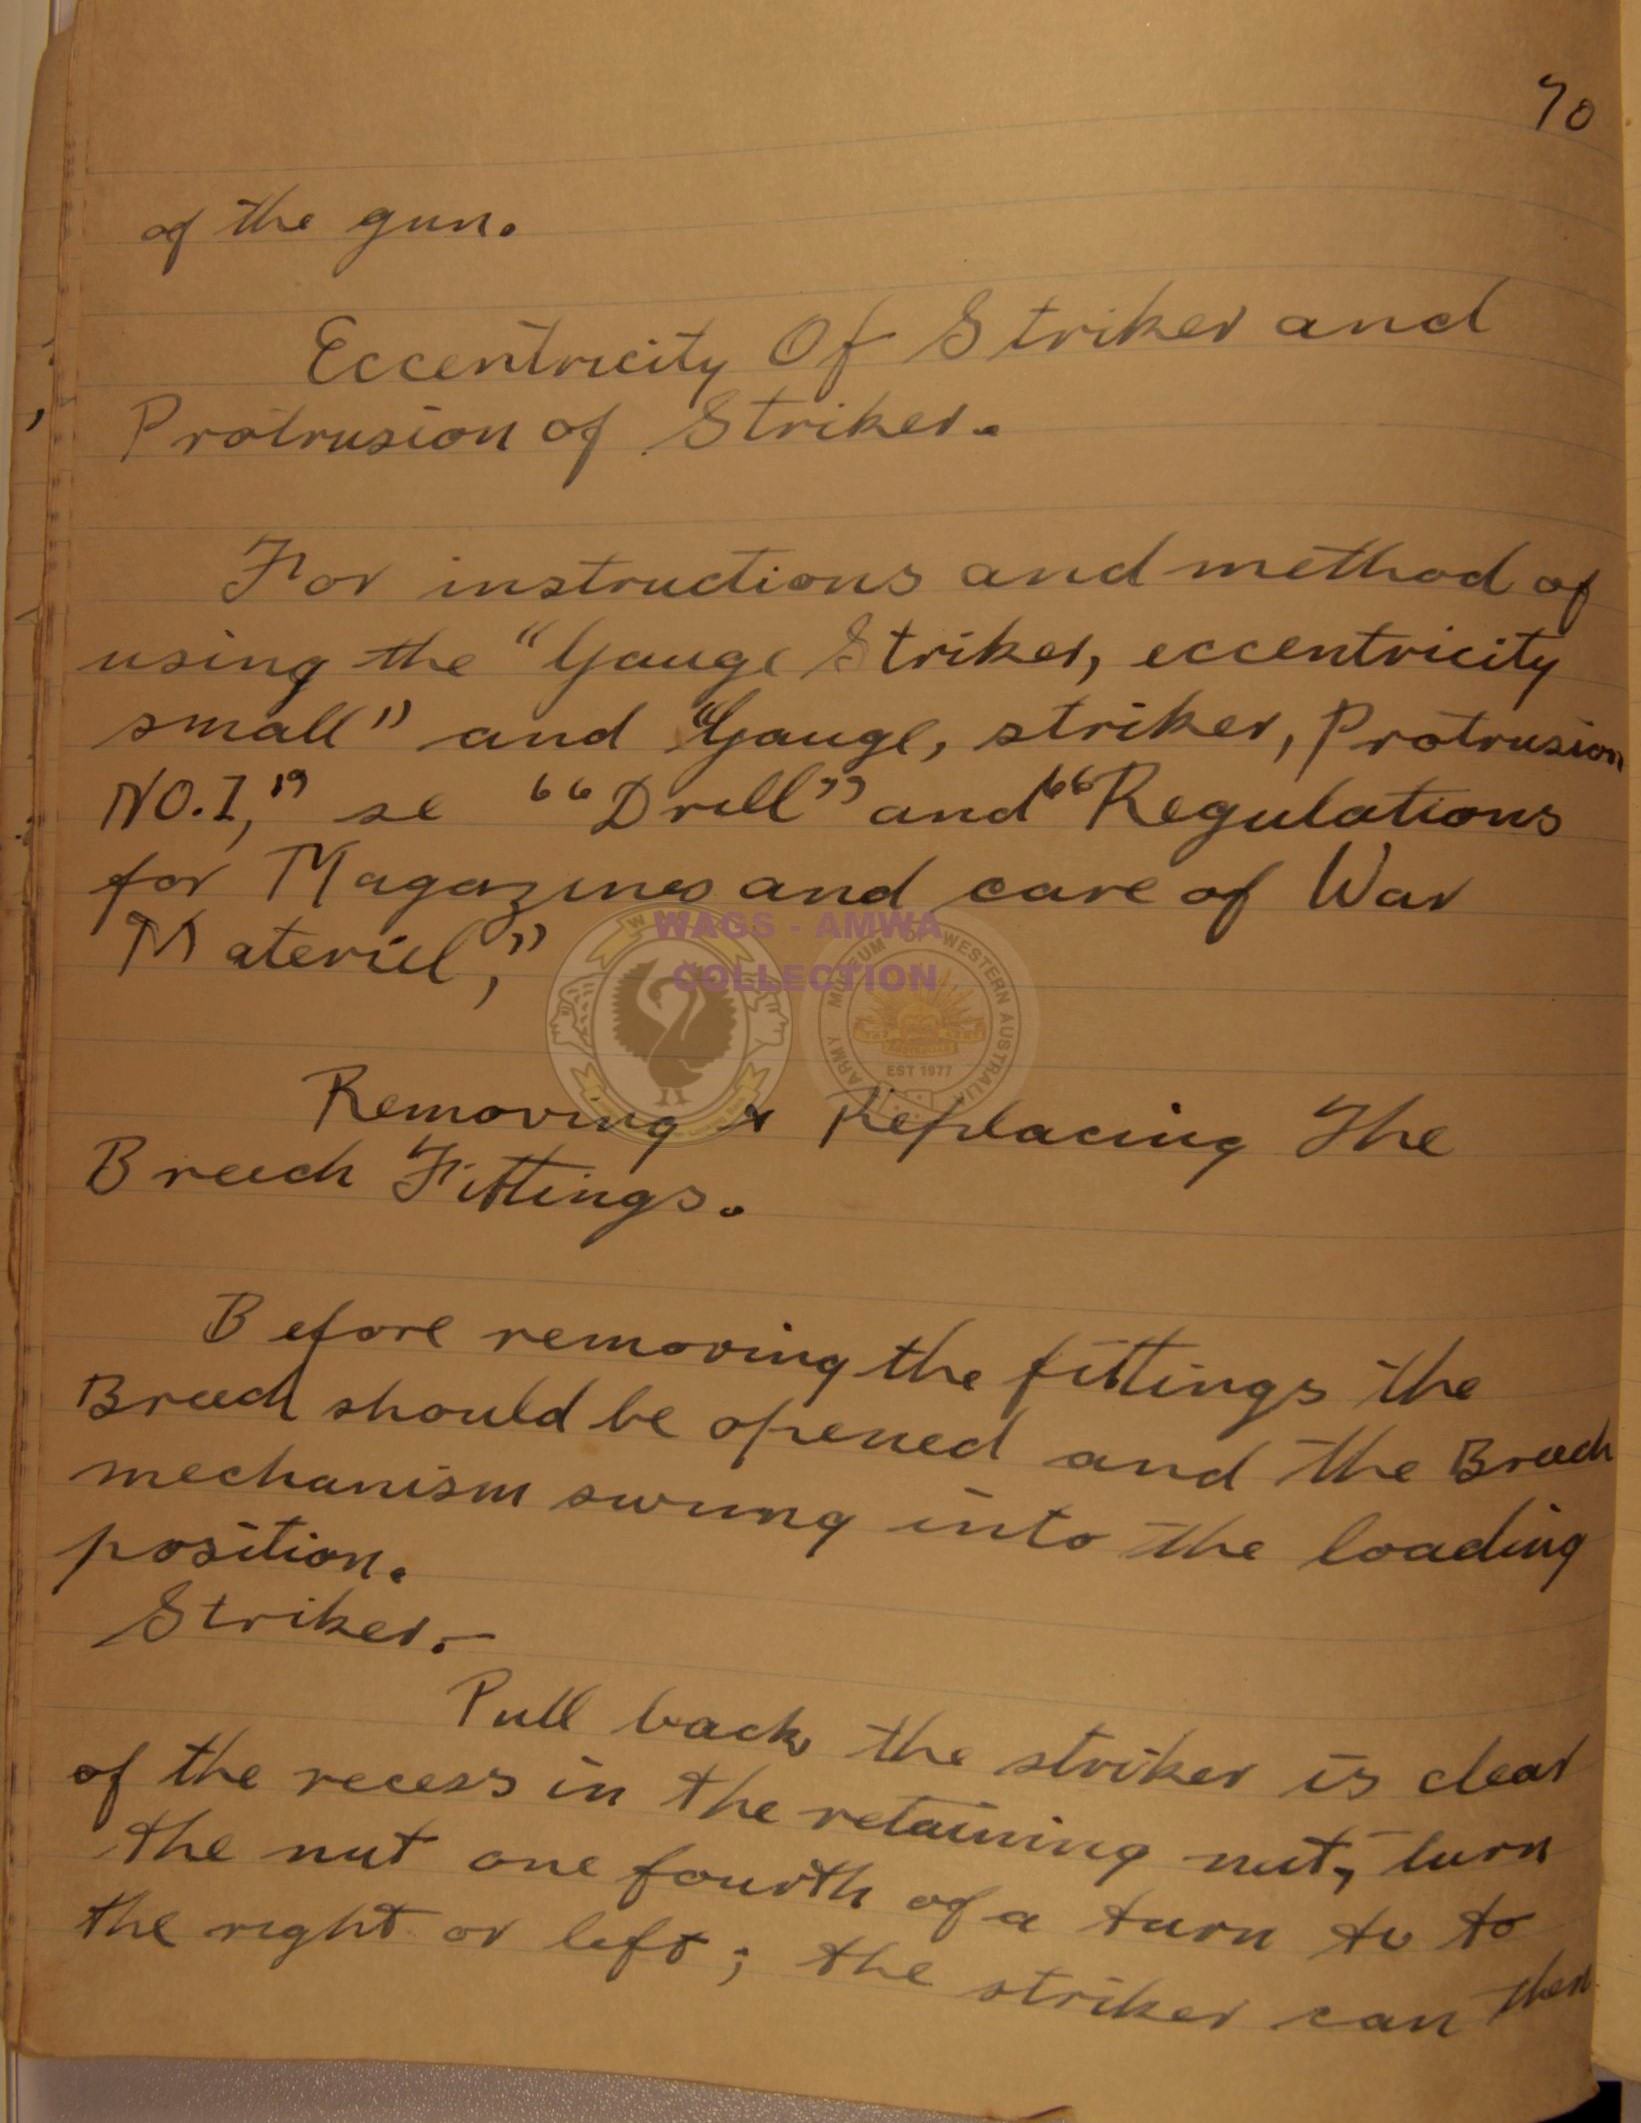 70
of the gun.
Eccentricity Of Striker and
Protrusion of Striker.
For instructions and method of
using the "Gauge Striker, eccentricity
small" and "Gauge, striker, Protrusion
NO.I," se ""Drill" and "Regulations
for Magazines and care of War
Materiel,"
WAGS - AMWA
COLLECTION
ARMY MUSEUM OF WESTERN AUSTRALIA
EST 1977
Removing & Replacing The
Breech Fittings.
Before removing the fittings the
Breech should be opened and the Breech
mechanism swung into the loading
position.
Striker.-
Pull back the striker is clear
of the recess in the retaining nut, turn
the nut one fourth of a turn to to
the right or left; the striker can then